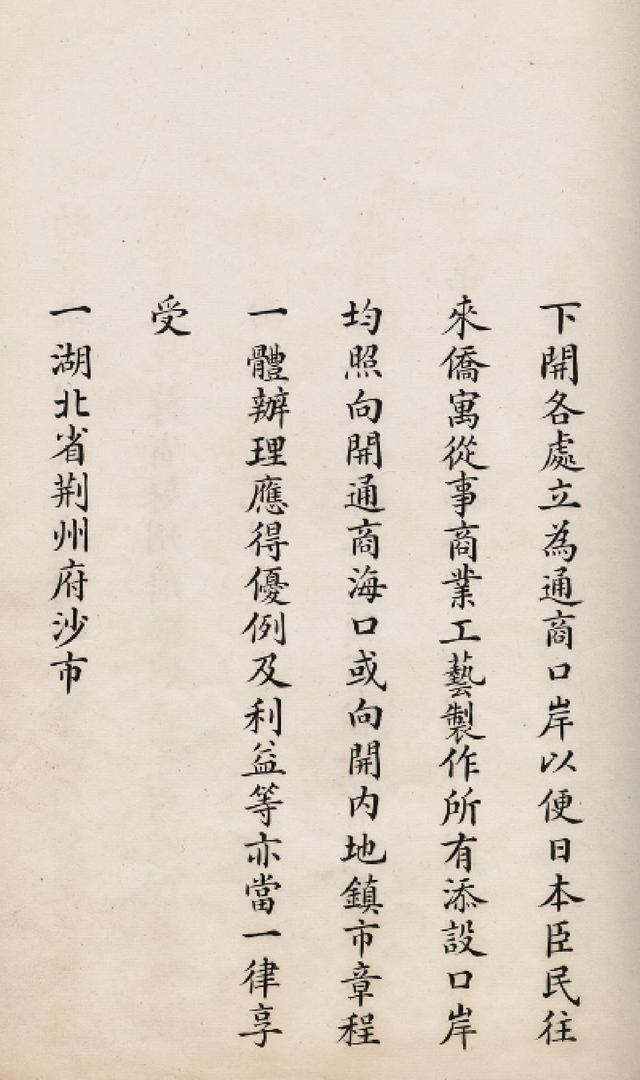 下開各處立為通商口岸以便日本臣民往
來僑寓從事商業工藝製作所有添設口岸
均照向開通商海口或向開内地鎮市章程
一體辦理應得優例及利益等亦當一律享
受
一湖北省荆州府沙市